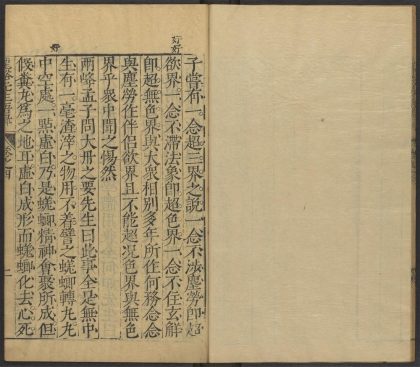 子嘗有一念超三界之說一念不涉塵勞即超
欲界一念不滯法象即超色界一念不住玄解
即超無色界與大衆相別多年所作何務念念
與塵勞作伴侶欲界且不能超況色界與無色
界乎衆中聞之惕然
兩峰孟子問大丹之要先生曰此事全是無中
生有一毫渣滓之物用不著譬之蜣蜋轉丸丸
中空處一點虛白乃是蜣蜋精神會聚所成但
假糞丸為之地耳虛白成形而蜣蜋化去心死